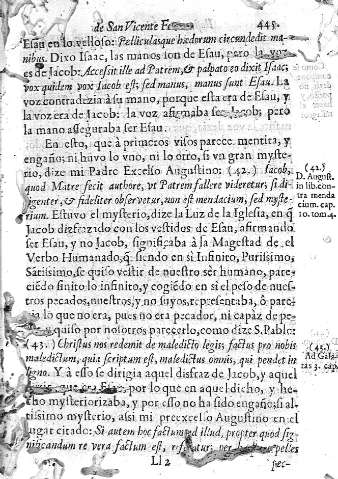 de San Vicente 445
Esau en lo velloso: Pelliculasque hœdorum circundedit ma-
nibus. Dixo Isaac, las manos son de Esau, pero la voz
es de Jacob: Accessit ille ad Patrem, & palpato eo dixit Isaac,
vox quidem vox Jacob est; sed manus, manus sunt Esau. La
voz contradezia à su mano, porque esta era de Esau, y
la voz era de Jacob: la voz afirmaba ser Jacob; pero
la mano asseguraba ser Esau.
En esto, que à primeros visos parece mentira, y
engaño; ni huvo lo vno, ni lo otro, si va gran myste-
rio, dize mi Padre Excelso Augustino: (42.) Iacob,
quod Matre fecit authore, vt Patrem fallere videretur, si di-
ligenter, & fideliter observetur, non est mendacium, sed myste-
rium. Estuvo el mysterio, dize la Luz de la Iglesia, en q̃
Jacob disfrazado con los vestidos de Esau, afirmando
ser Esau, y no Jacob, significaba à la Magestad de el
Verbo Humanado, q̃ siendo en si Infinito, Purissimo,
Santissimo, se quiso vestir de nuestro ser humano, pare-
ciẽdo finito lo infinito, y cogiẽdo en si el peso de nues-
tros pecados, nuestros, y no suyos, representaba, ò pare-
cia lo que no era, pues no era pecador, ni capàz de pe-
quiso por nosotros parecerlo, como dize S. Pablo:
(43.) Christus nos redemit de maledicto legis, factus pro nobis
maledictum, quia scriptum est, maledictus omnis, qui pendet in
ligno. Y à esso se dirigia aquel disfraz de Jacob, y aquel
que era Esau, por lo que en aquel dicho, y he-
cho mysteriorizaba, y por esso no ha sido engaño; si al-
tissimo mysterio, assi mi preexcelso Augustino en el
lugar citado: Si autem hoc factum, ed illud, propter quod sig-
nificandum re vera factum est, referatur; per hœdinas pelles
Ll 2 pec-
(42.)
D. August.
in lib. con-
tra menda
cium. cap.
10. tom. 4.
(43.)
Ad Gala-
tas 3. cap.